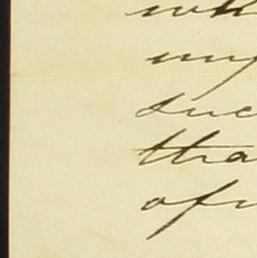 wh
my
suc
tha
of